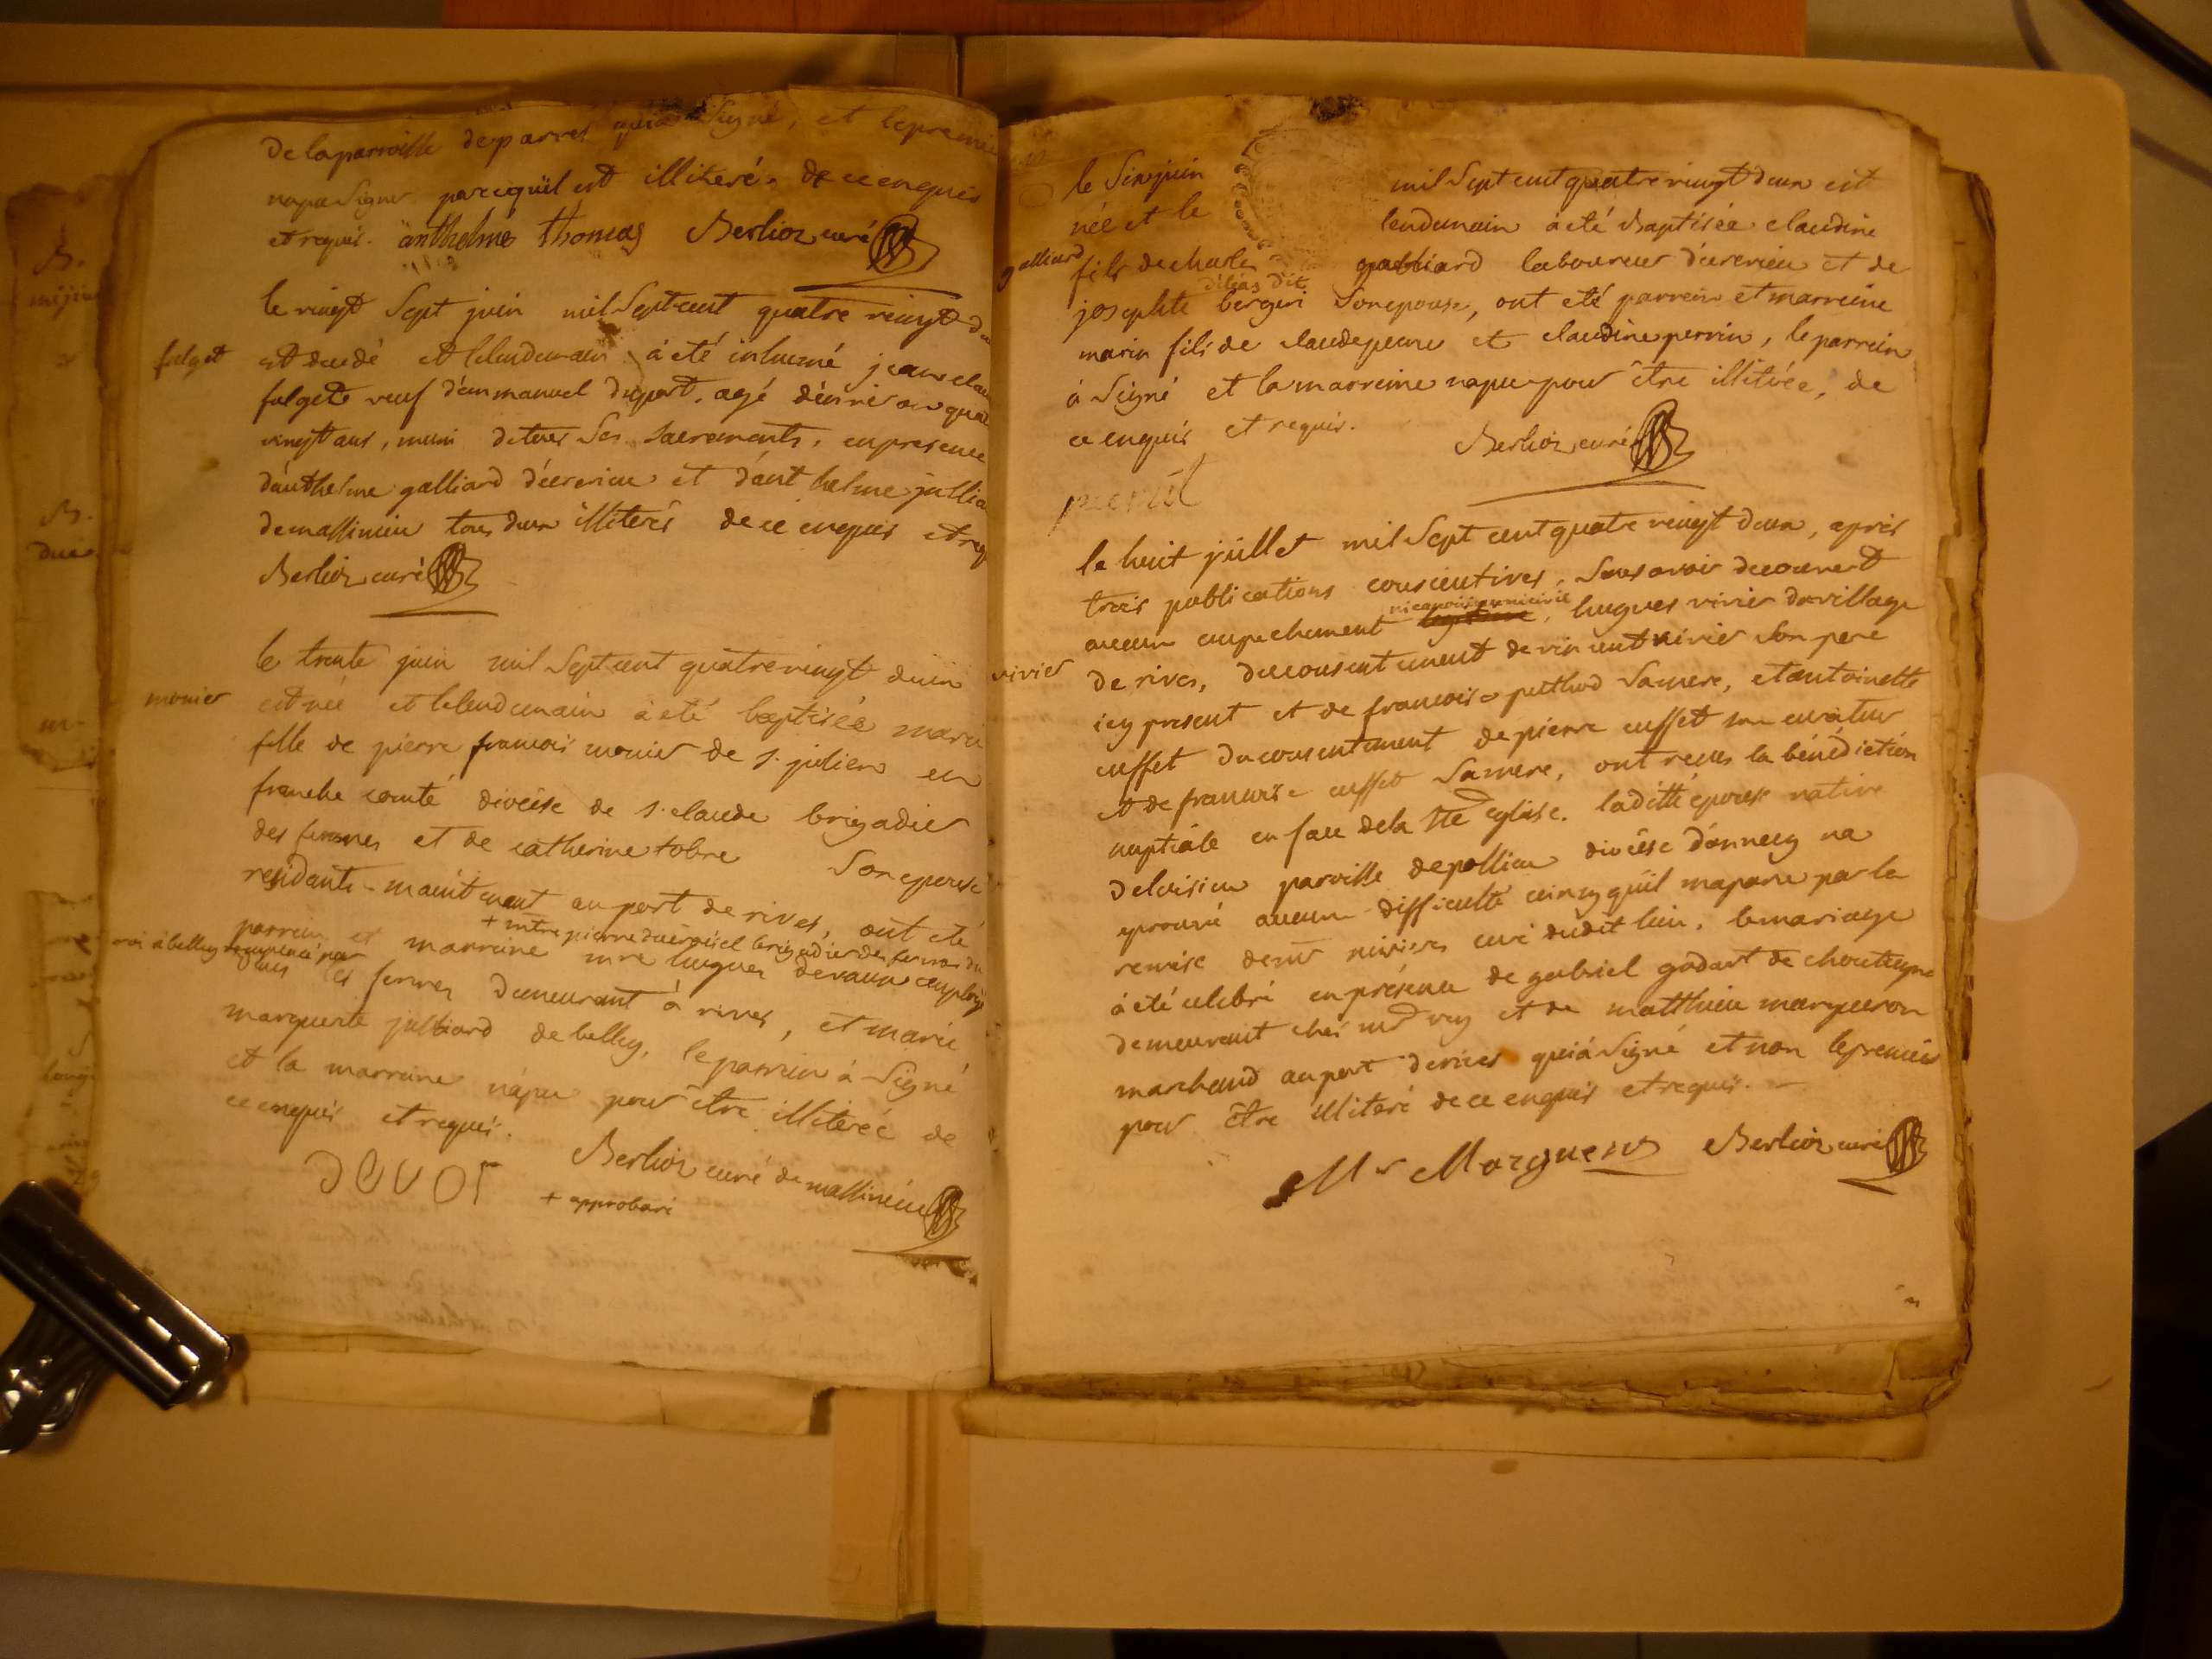 De la parroisse de parves qui a Signé, et le premie
na pu Signer parcequil est illiteré. de ce enquis
et requis. anthelme thomas Berlioz curé
le vingt Sept juin mil Sept cent quatre vingt d
falget est decedé et le lendemain à eté inhumé jean clau
falget veuf d'emmanuel duport, agé d'environ quat
vingt ans, muni de tous Ses Sacrements, en presence
d'anthelme galliard d'ecrerieu et d'anthelme jullia
de massinieu tous deux illiterés de ce enquis et req
Berlioz curé
le trente juin mil Sept cent quatre vingt deux
monier est née et le lendemain à eté baptisée marie
fille de pierre francois monier de s. julien en
franche comté diocèse de s. claude brigadier
des fermes et de catherine tobre Son epouse
residants maintenant au port de rives, ont eté
+ mtre pierre brigadier des fermes du
parrein et marreine mre hugues devaux employé
roi à belley remplacé par
dans les fermes demeurant à rives, et marie
marguerite julliard de belley, le parrein à Signé
et la marreine n'a pu pour être illiterée de
ce enquis et requis.
Berlioz curé de massinieu
+ approbavi
le Six juin mil Sept cent quatre vingt deux est
née et le lendemain à eté Baptisée claudine
galliard fils de charles galliard laboureur d'ecrerieu et de
dit
josephte bergeri Son epouse, ont eté parrein et marreine
marin fils de claude et claudine perrin, le parrein
à Signé et la marreine na pu pour être illiterée, de
ce enquis et requis.
Berlioz curé
le huit juillet mil Sept cent quatre vingt deux, après
trois publications consecutives, Sans avoir decouvert
ni canonique ni civil
aucun empechement legitime, hugues vivier du village
vivier de rives, du consentement de vincent vivier Son pere
icy present et de francoise puthod Sa mere, et antoinette
cusset du consentement de pierre cusset son curateur
et de francoise cusset Sa mere, ont reçu la bénédiction
nuptiale en face de la Ste eglise. la ditte epouse native
de loisieu parroisse de pollieu diocèse d'annecy na
eprouvé aucune difficulté ainsy qu'il m'apare par la
remise de mr curé du dit lieu, le mariage
à eté celebré en présence de gabriel godart de chouteyne
demeurant chez mr rey et de matthieu margueron
marchand au port de rives qui à Signé et non le premier
pour être illiteré de ce enquis et requis.
Mr Marguero Berlioz curé